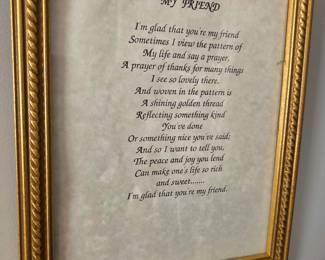 MY FRIEND
I'm glad that you're my friend
Sometimes I view the pattern of
My life and say a prayer,
A prayer of thanks for many things
I see so lovely there.
And woven in the pattern is
A shining golden thread
Reflecting something kind
You've done
Or something nice you've said;
And so I want to tell you,
The peace and joy you lend
Can make one's life so rich
and sweet.......
I'm glad that you're my friend.